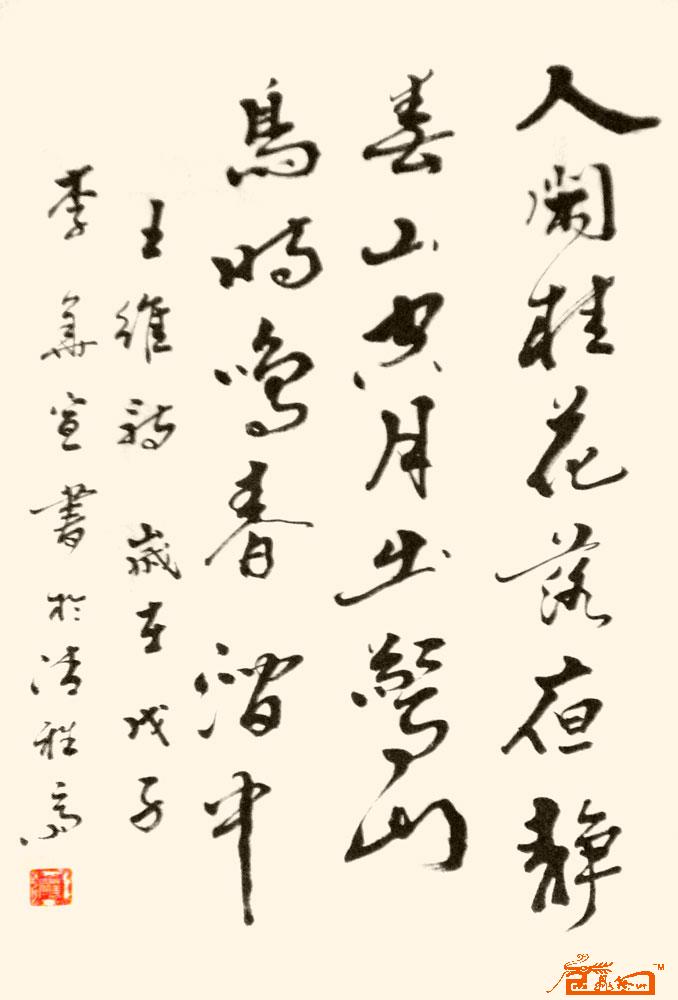 人閑桂花落夜靜
春山空月出驚山
鳥時鳴春澗中
王維詩 歲在戊子
李宣書於清雅齋